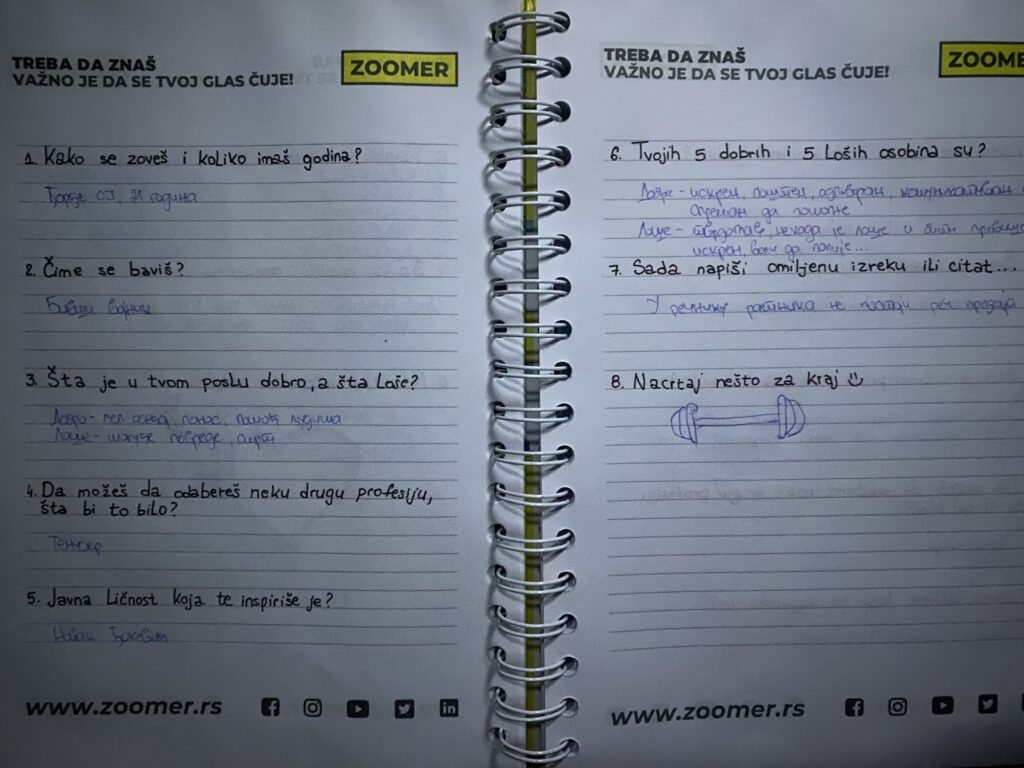 TREBA DA ZNAŠ
VAŽNO JE DA SE TVOJ GLAS ČUJE!
ZOOMER
1. Kako se zoveš i koliko imaš godina?
Ђорђе СЈ, 21 година
2. Čime se baviš?
Бивши војник
3. Šta je u tvom poslu dobro, a šta Loše?
Добро - понос, помоћ људима
Лоше - могуће повреде, смрт
4. Da možeš da odabereš neku drugu profesiju,
šta bi to bilo?
Тенисер
5. Javna Ličnost koja te inspiriše je?
Новак Ђоковић
www.zoomer.rs
TREBA DA ZNAŠ
VAŽNO JE DA SE TVOJ GLAS ČUJE!
ZOOME
6. Tvojih 5 dobrih i 5 Loših osobina su?
Добре - искрен, поштен, одговоран, комуникативан и
спреман да помогне
Лоше - тврдоглав, некада је лаже и
искрен, воли да попује...
7. Sada napiši omiljenu izreku ili citat...
У речнику ратника не постоји реч предаја
8. Nacrtaj nešto za kraj
www.zoomer.rs